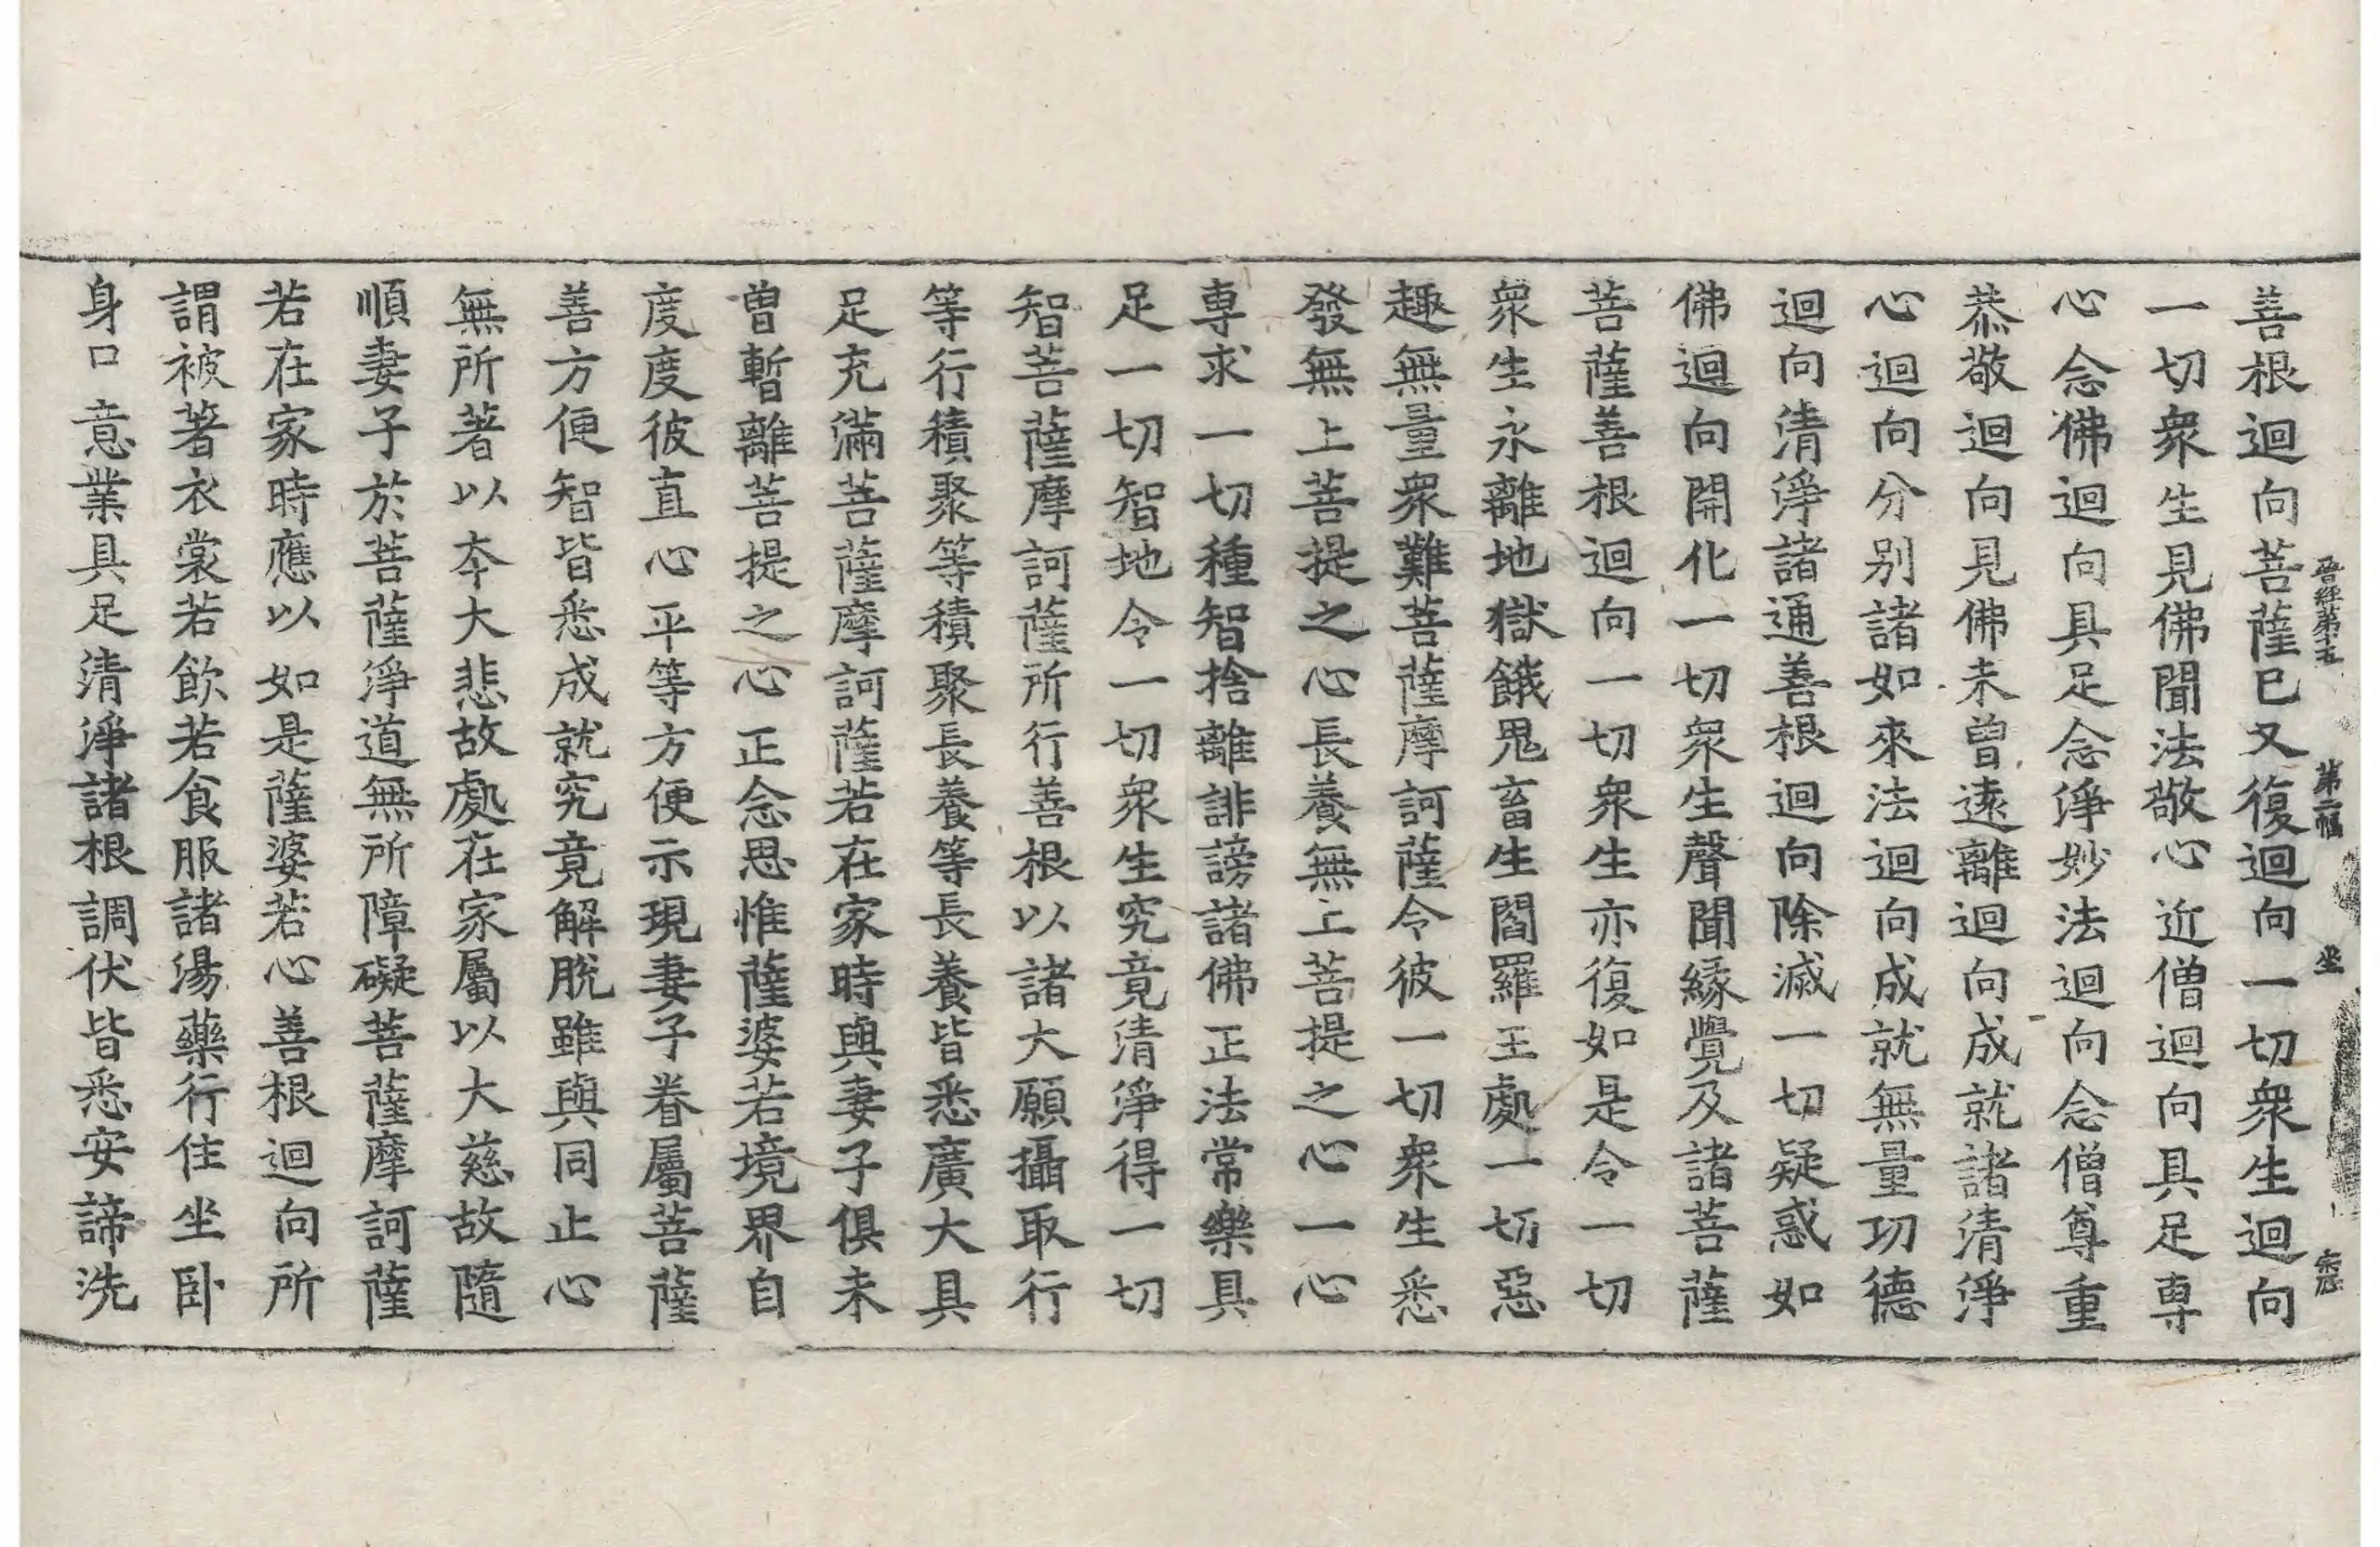 晉經第十五　第二幅　坐　宋庄
善根迴向菩薩已又復迴向一切衆生迴向
一切衆生見佛聞法敬心近僧迴向具足專
心念佛迴向具足念淨妙法迴向念僧尊重
恭敬迴向見佛未曾遠離迴向成就諸清淨
心迴向分別諸如來法迴向成就無量功德
迴向清淨諸通善根迴向除滅一切疑惑如
佛迴向開化一切衆生聲聞緣覺及諸菩薩
菩薩善根迴向一切衆生亦復如是令一切
衆生永離地獄餓鬼畜生閻羅王處一切惡
趣無量衆難菩薩摩訶薩令彼一切衆生悉
發無上菩提之心長養無上菩提之心一心
專求一切種智捨離誹謗諸佛正法常樂具
足一切智地令一切衆生究竟清淨得一切
智菩薩摩訶薩所行善根以諸大願攝取行
等行積聚等積聚長養等長養皆悉廣大具
足充滿菩薩摩訶薩若在家時與妻子俱未
曾暫離菩提之心正念思惟薩婆若境界自
度度彼直心平等方便示現妻子眷屬菩薩
善方便智皆悉成就究竟解脫雖與同止心
無所著以本大悲故處在家屬以大慈故隨
順妻子於菩薩淨道無所障礙菩薩摩訶薩
若在家時應以如是薩婆若心善根迴向所
謂被著衣裳若飲若食服諸湯藥行住坐卧
身口意業具足清淨諸根調伏皆悉安諦洗